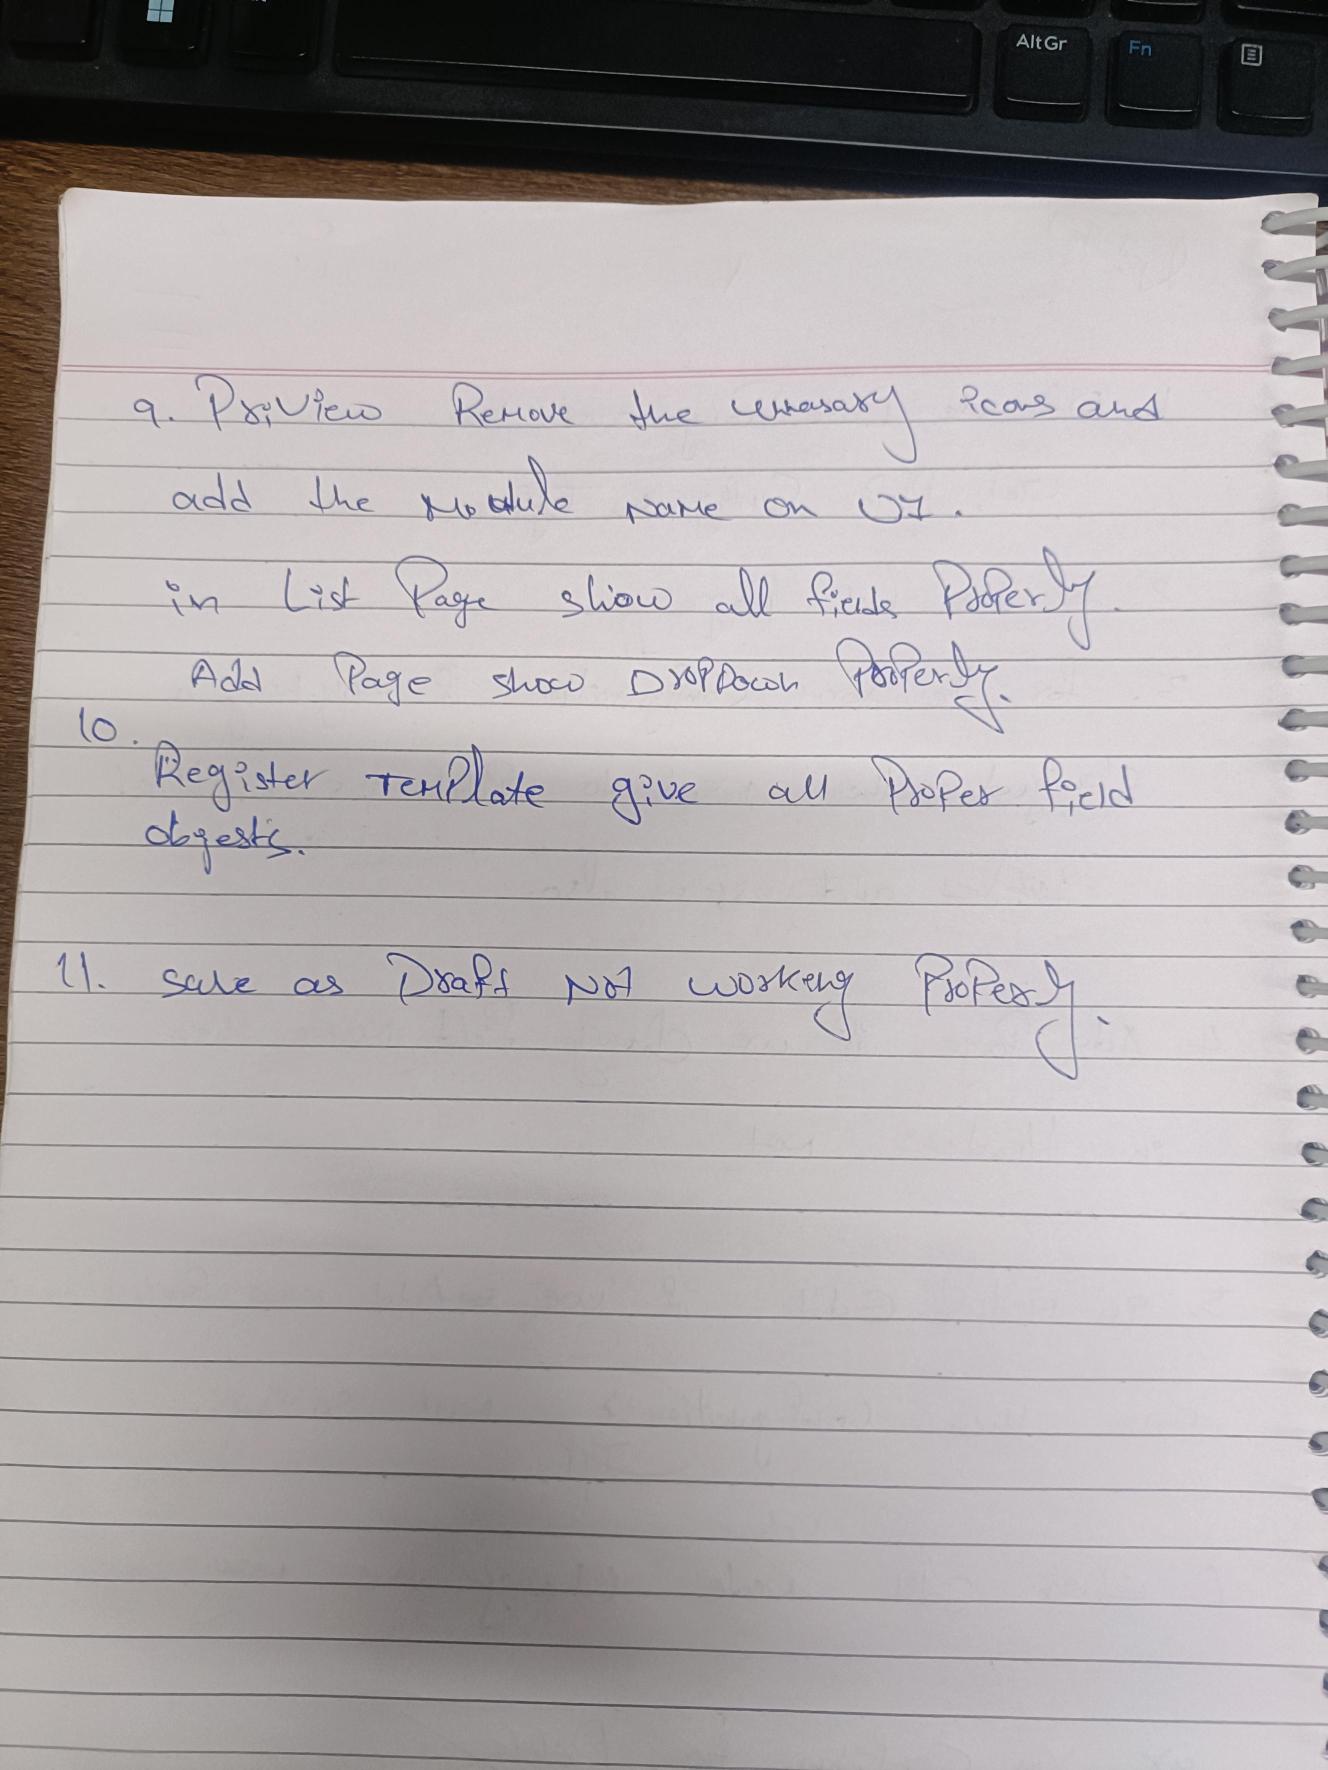 AltGr
Fn
9. Priview Remove the unnasary icons and
add the Module Name on UI.
in List Page show all fields Properly.
Add Page show DropDown Properly.
10.
Register Template give all Proper field
objests.
11. save as Draft Not working Properly.